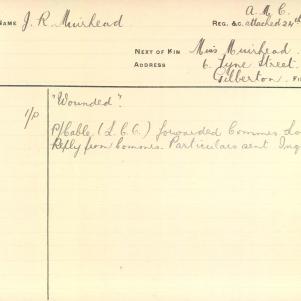 NAME J. R. Muirhead
A.M.C.
REG. &C. attached 24th
NEXT OF KIN Miss Muirhead
ADDRESS 6. Tyne Street.
Gilberton.
1/P "Wounded".
P/Cable (L.C.C.) forwarded Commrs. Lo
Reply from Commrs. Particulars sent Inq